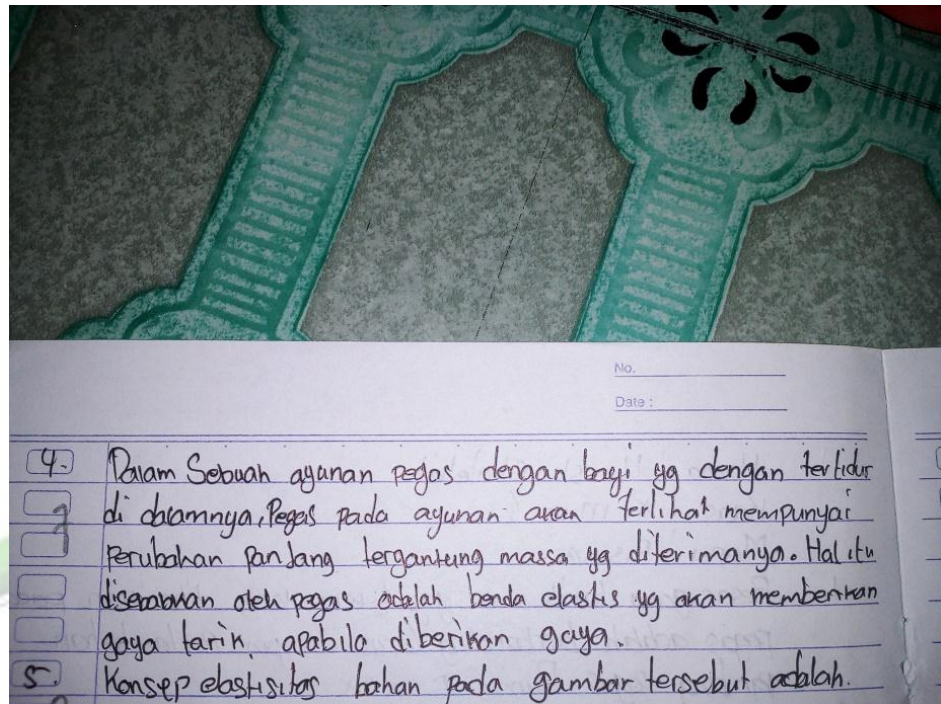 No.
Date :
4. Dalam Sebuah ayunan pegas dengan bayi yg dengan tertidur
di dalamnya, Pegas pada ayunan akan terlihat mempunyai
Perubahan Panjang tergantung massa yg diterimanya. Hal itu
disebabkan oleh pegas adalah benda elastis yg akan memberikan
gaya tarik apabila diberikan gaya.
5. Konsep elastisitas bahan pada gambar tersebut adalah.